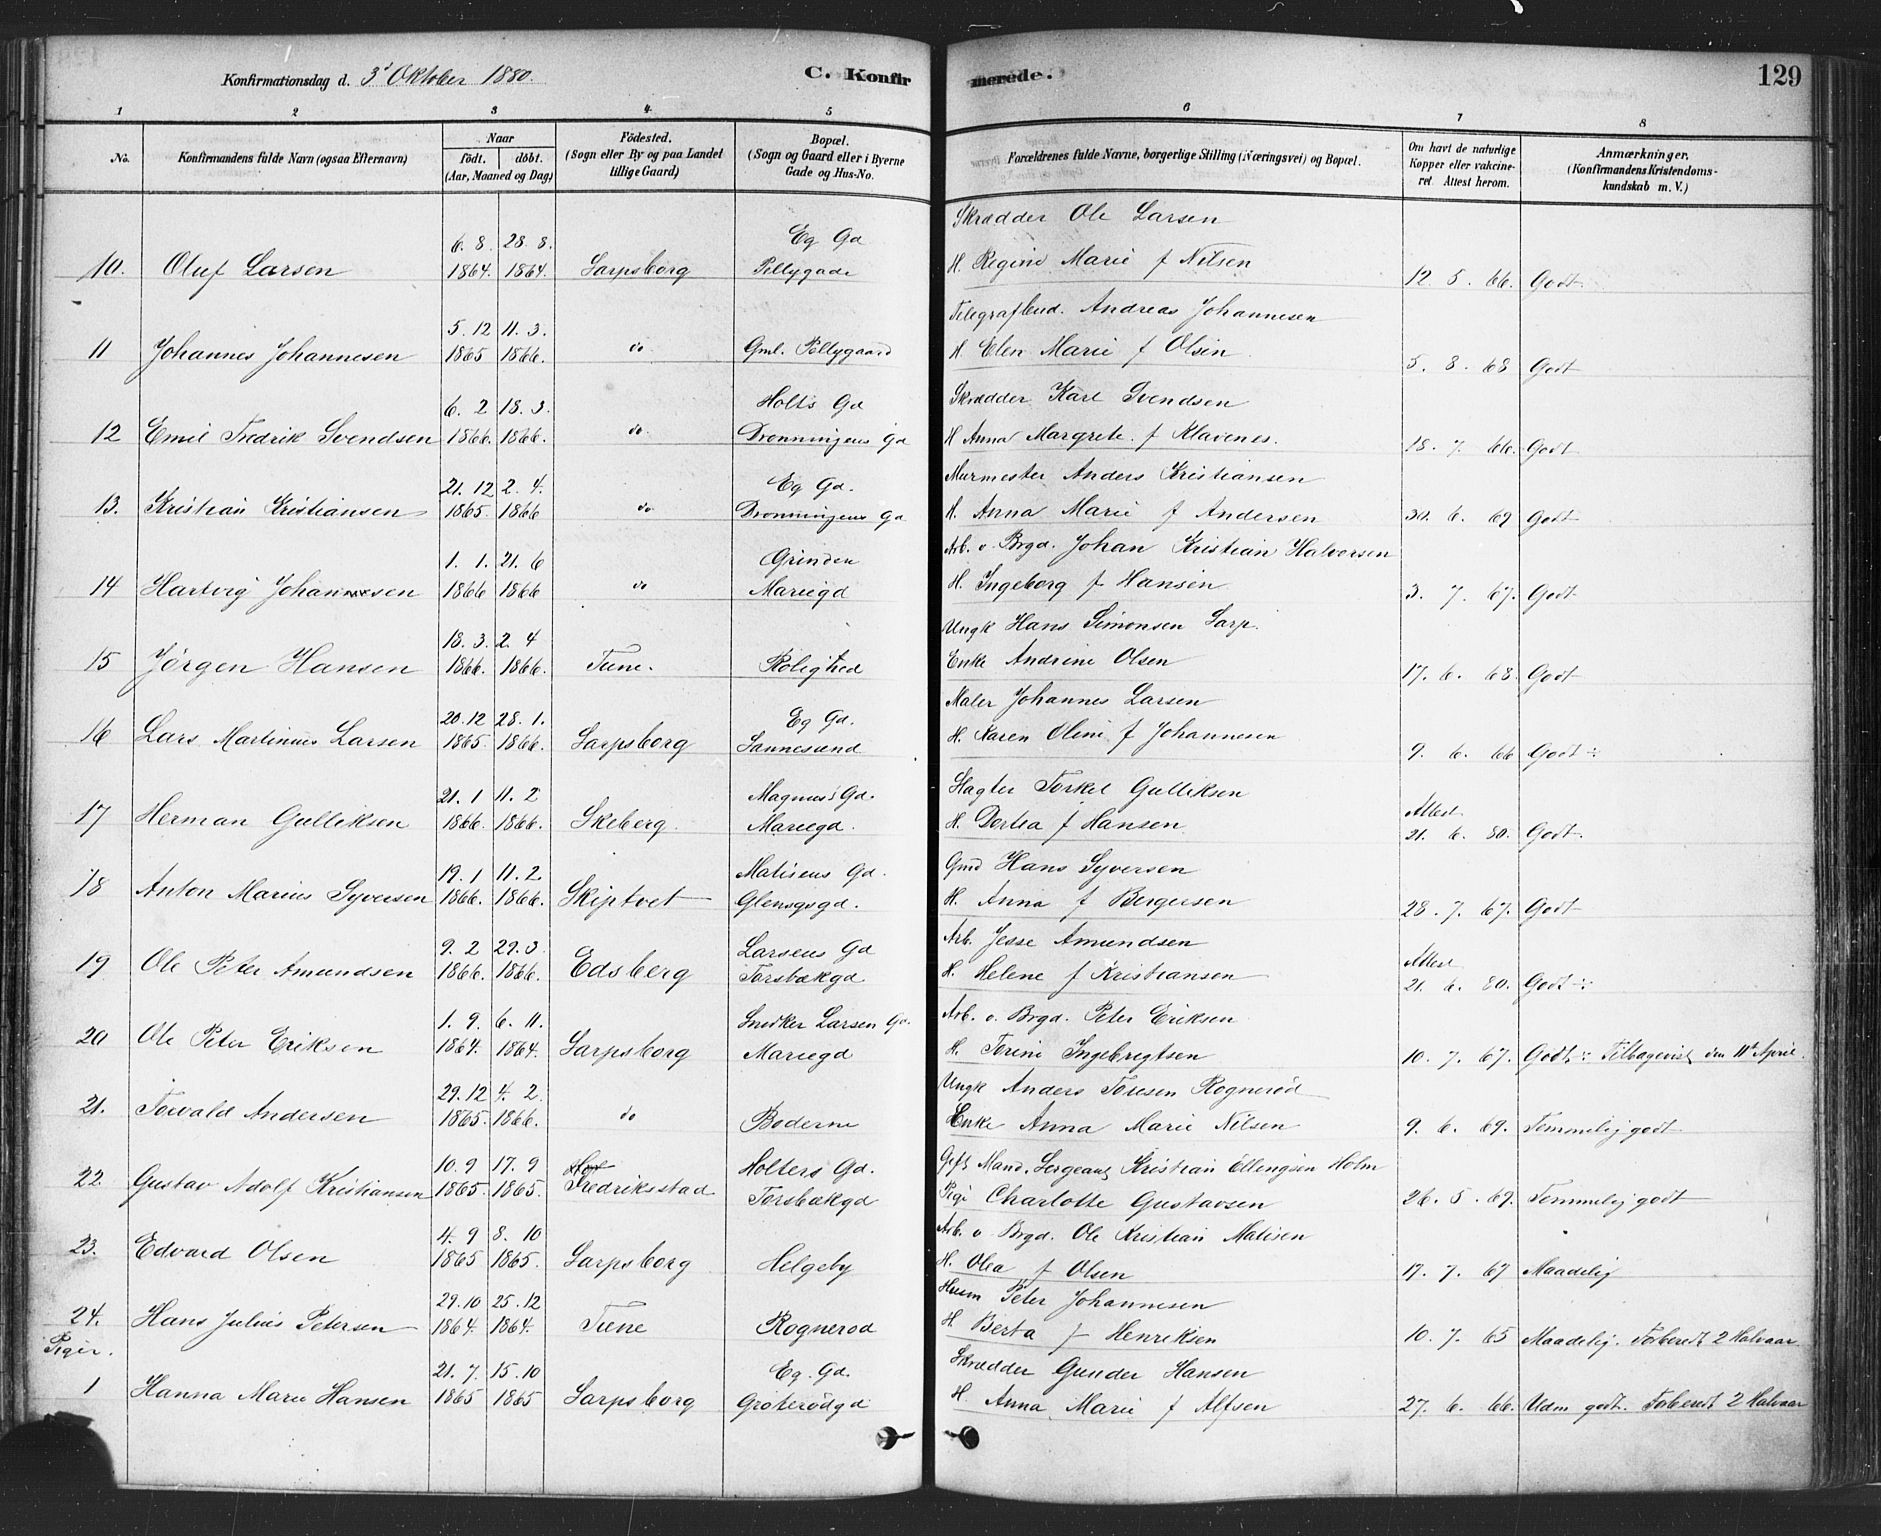 Konfirmationsdag d. 3' Oktober 1880.
C. Konfirmerede.
129
1 2 3 4 5 6 7 8
No.
Konfirmandens fulde Navn (ogsaa Efternavn)
Naar
födt. döbt.
(Aar, Moaned og Dag)
Födested.
(Sogn eller By og paa Landet
tillige Gaard)
Bopæl.
(Sogn og Gaard eller i Byerne
Gade og Hus-No.
Forældrenes fulde Navne, borgerlige Stilling (Næringsvei) og Bopæl.
Om havt de naturlige
Kopper eller vakcine-
ret Attest herom.
Anmærkninger.
(Konfirmandens Kristendoms-
kundskab m. V.)
6. 8. 28. 8. Eg Gd Skrædder Ole Larsen
10. Oluf Larsen 1864. 1864. Sarpsborg Pellygade H. Regine Marie f Nilsen 12 5. 66. Godt
5. 12 11. 3. Telegrafbud. Andreas Johannesen
11 Johannes Johannesen 1865 1866. do Gml. Pellygaard H. Elen Marie f Olsen 5. 8. 68 Godt
6. 2 18. 3. Holts Gd Skrædder Karl Svendsen
12 Emil Fredrik Svendsen 1866. 1866. do. Dronningens Gd H Anna Margrete. f Klavenes. 18. 7. 66. Godt
21. 12 2. 4. Eg Gd. Murmester Anders Kristiansen
13. Kristian Kristiansen 1865. 1866 do Dronningens Gd H. Anna Marie f Andersen 30. 6. 69 Godt
1. 1. 21. 6 Grinden Arb. o Brgd. Johan Kristian Halvorsen
14 Hartvig Johannesen 1866 1866 do Mariegd H. Ingeborg f Hansen 3. 7. 67. Godt
18. 3. 2. 4 Ungk Hans Simonsen Sarp.
15 Jørgen Hansen 1866. 1866. Tune. Rolighed Enke Andrine Olsen 17. 6. 68. Godt
20. 12 28. 1. Eg Gd. Maler Johannes Larsen
16 Lars Martinius Larsen 1865. 1866. Sarpsborg Sannesund H. Karen Oline f Johannesen 9. 6. 66 Godt
21. 1 11. 2 Magnus's Gd. Hagter Torkel Gulliksen Attest
17 Herman Gulliksen 1866. 1866. Skeberg. Mariegd. H. Dortea f Hansen 21. 6. 80. Godt.
19. 1 11. 2. Matisens Gd. Gmd Hans Syversen
18 Anton Marius Syversen 1866. 1866. Skiptvet Glengsgd. H. Anna f Bergersen 28. 7. 67. Godt
9. 2 29. 3. Larsens Gd Arb. Jesse Amundsen Attest
19 Ole Peter Amundsen 1866. 1866. Edsberg Torsbækgd H. Helene f Kristiansen 21. 6. 80. Godt
1. 9. 6. 11. Snedker Larsen Gd. Arb. o. Brgd. Peter Eriksen
20 Ole Peter Eriksen 1864. 1864. Sarpsborg Mariegd H. Terine Ingebrigtsen 10. 7. 67. Godt. Tilbagevist den 11te April.
29. 12 4. 2. Ungk Anders Toresen Rognerød
21. Torvald Andersen 1865. 1866. do Boderne Enke Anna Marie Nilsen 9. 6. 69. Temmelig godt
10. 9 17. 9 Holters Gd. Gift Mand, Sergeant Kristian Ellengsen Holm
22. Gustav Adolf Kristiansen 1865. 1865. Fredriksstad Torsbækgd Pige Charlotte Gustavsen 26. 5. 69. Temmelig godt
4. 9 8. 10 Arb. o Brgd. Ole Kristian Matisen
23. Edvard Olsen 1865 1865. Sarpsborg Helgeby H. Olea f Olsen 17. 7. 67 Maadelig
29. 10 25. 12 Husm Peter Johannesen
24. Hans Julius Petersen 1864. 1864. Tune Rognerød H Berta f Henriksen 10. 7. 65 Maadelig. Forberedt 2 Halvaar.
Piger.
21. 7. 15. 10 Eg. Gd. Skrædder Gunder Hansen
1 Hanna Marie Hansen 1865 1865 Sarpsborg Grøterødgd H. Anna Marie f Alfsen 27. 6. 66. Udm godt. Forberedt 2 Halvaar